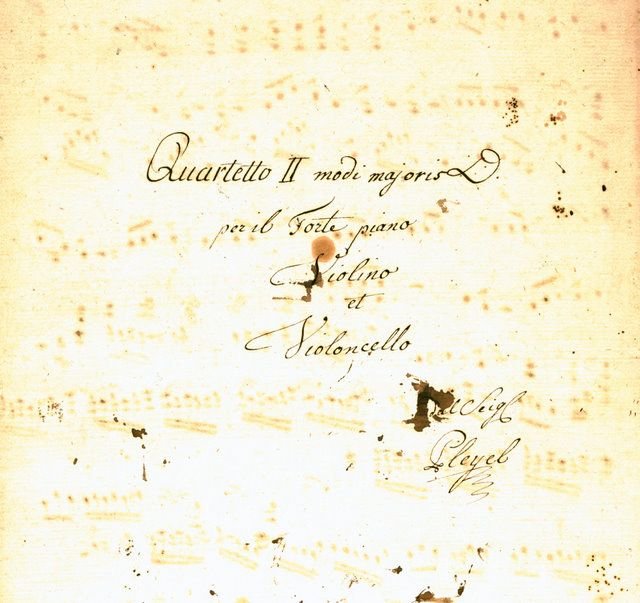 Quartetto II modi majoris D.
per il Forte piano
Violino
et
Violoncello
Del Sigl
Pleyel